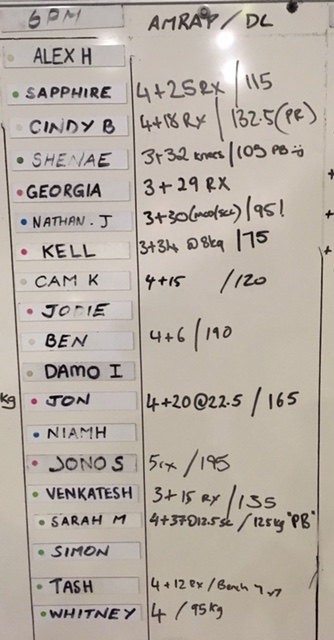 6PM AMRAP / DL
ALEX H
SAPPHIRE 4+25 RX / 115
CINDY B 4+18 RX / 132.5 (PR)
SHENAE 3+32 knees / 105 PB
GEORGIA 3+29 RX
NATHAN. J 3+30 / 95!
KELL 3+34 @8kg / 75
CAM K 4+15 / 120
JODIE
BEN 4+6 / 190
DAMO I
kg JON 4+20@22.5 / 165
NIAMH
JONO S 5rx / 195
VENKATESH 3+15 RX / 135
SARAH M 4+37@12.5 sc / 125kg "PB"
SIMON
TASH 4+12 RX / Bench
WHITNEY 4 / 95kg